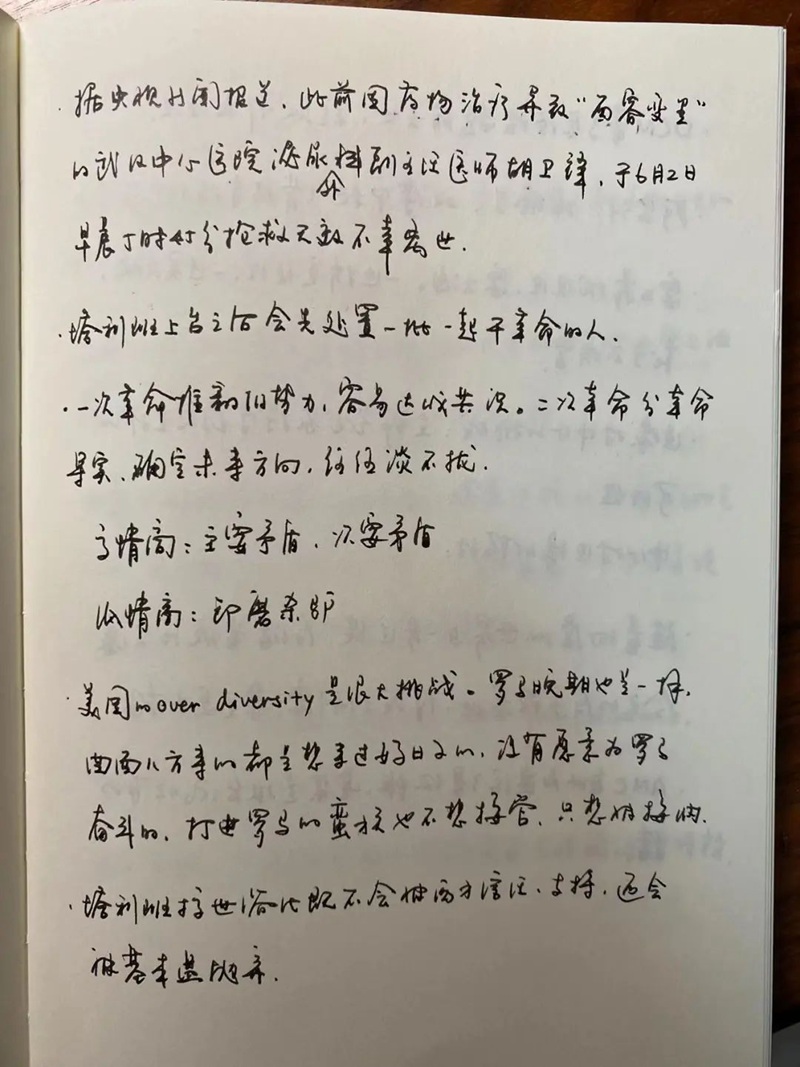 · 据央视新闻报道，此前因药物治疗导致“面容变黑”
的武汉中心医院泌尿外科副主任医师胡卫锋，于6月2日
早晨5时45分抢救无效不幸离世.
· 塔利班上台之后会先处置一批一起干革命的人.
· 一次革命推翻旧势力，容易达成共识。二次革命分革命
果实、确定未来方向，往往谈不拢.
高情商：主要矛盾、次要矛盾
低情商：卸磨杀驴
· 美国的over diversity是很大挑战。罗马晚期也是一样.
四面八方来的都是想来过好日子的，没有愿意为罗马
奋斗的，打进罗马的蛮族也不想接管，只想
· 塔利班搞世俗化既不会被西方信任、支持，还会
被基本盘抛弃.